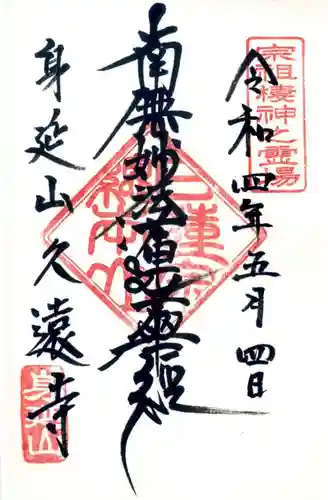 宗祖棲神之霊場
令和四年五月四日
南無妙法蓮華経
身延山久遠寺
身延山